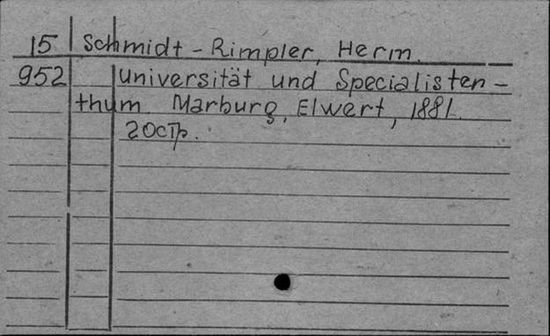 15 Schmidt - Rimpler, Herm.
952 Universität und Specialisten-
thum. Marburg, Elwert, 1881.
20 стр.